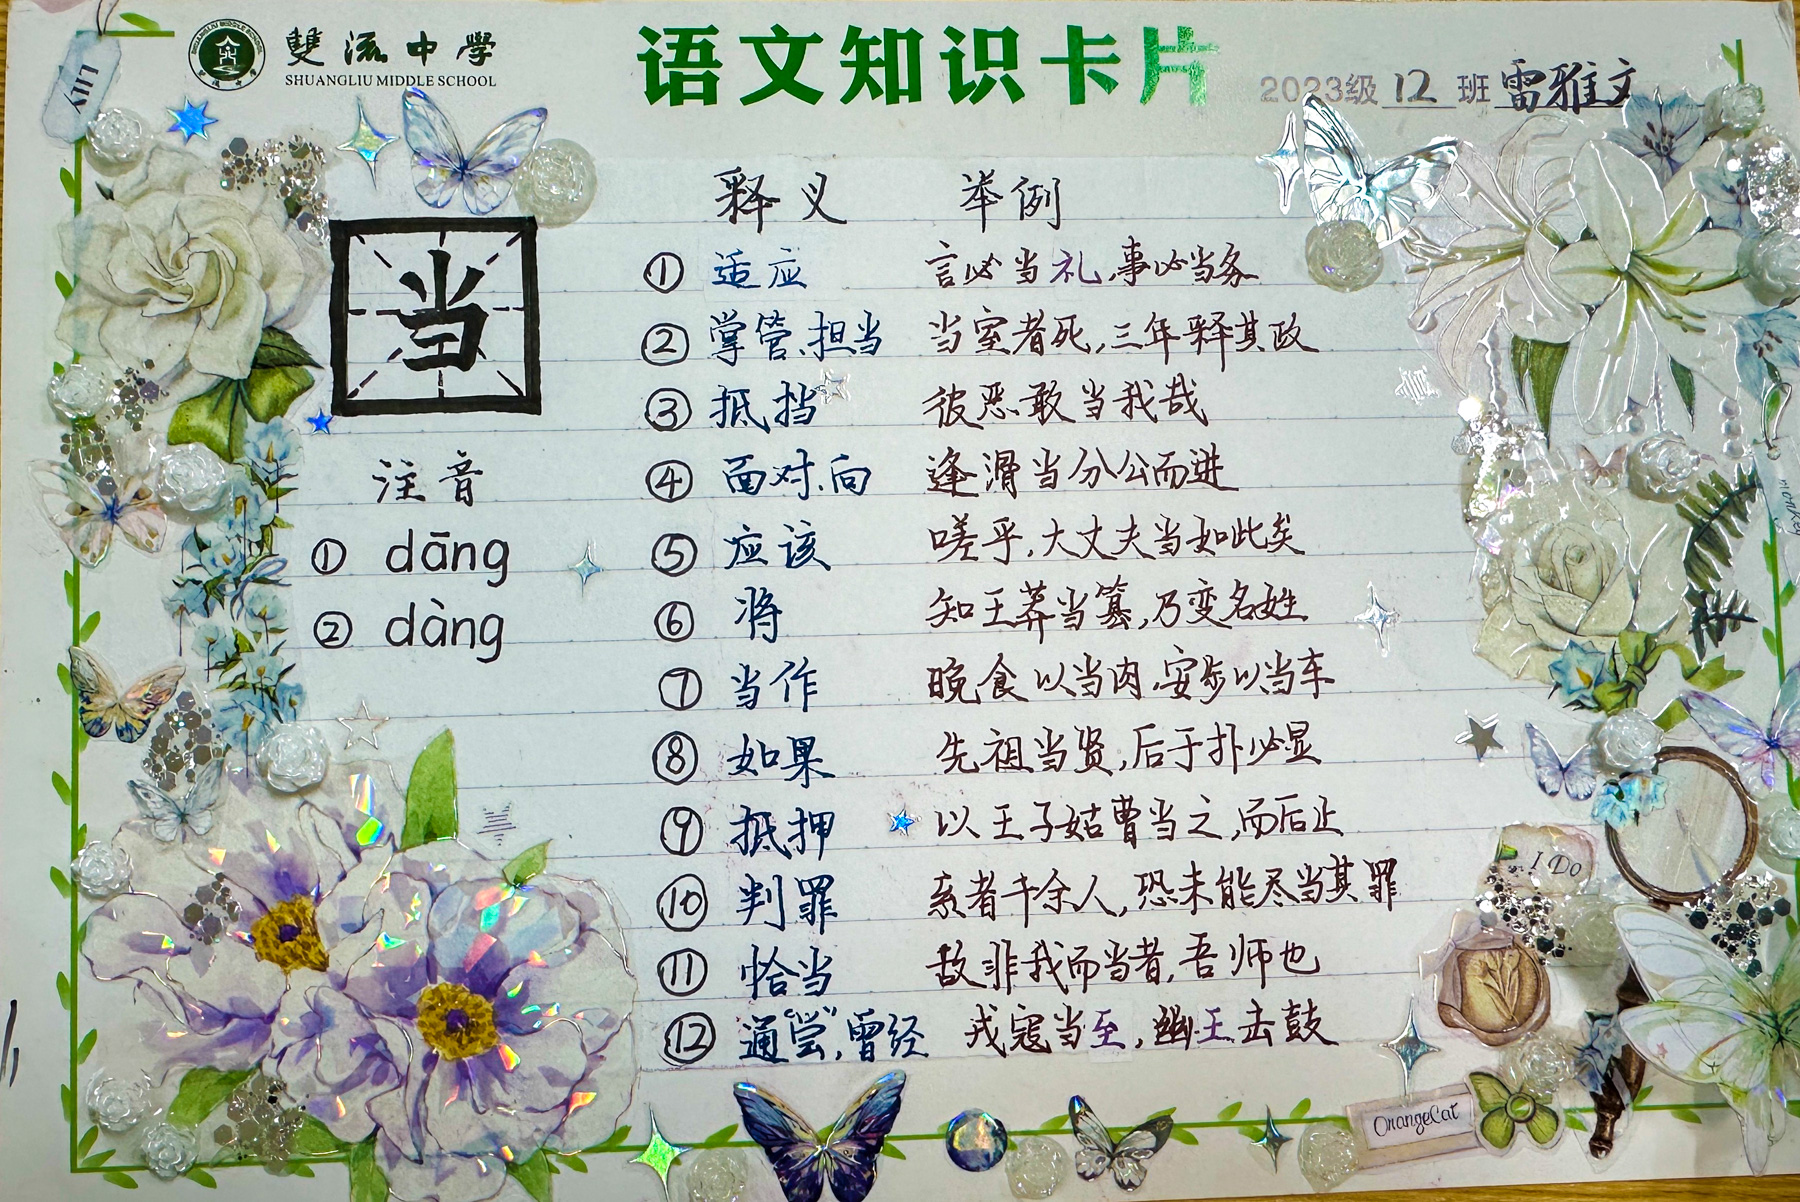 LILY
雙流中學
SHUANGLIU MIDDLE SCHOOL
语文知识卡片
2023级 12 班 雷雅文
当
注音
① dāng
② dàng
释义 举例
① 适应 言必当礼,事必当务
② 掌管、担当 当室者死,三年释其政
③ 抵挡 彼恶敢当我哉
④ 面对、向 逢滑当分公而进
⑤ 应该 嗟乎,大丈夫当如此矣
⑥ 将 知王莽当篡,乃变名姓
⑦ 当作 晚食以当肉,安步以当车
⑧ 如果 先祖当贤,后于扑必显
⑨ 抵押 以王子姑曹当之,而后止
⑩ 判罪 系者千余人,恐未能尽当其罪
⑪ 恰当 敌非我而当者,吾师也
⑫ 通“尝”,曾经 戎寇当至,幽王击鼓
I Do
OrangeCat